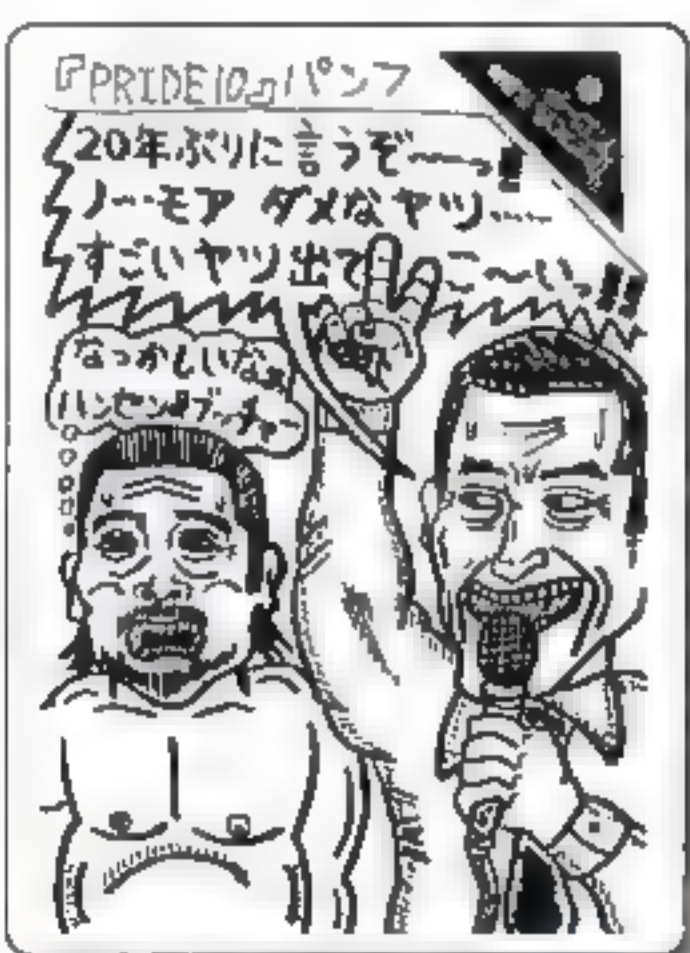 『PRIDE10』パンフ
20年ぶりに言うぞ〜〜っ!!
ノーモア ダメなヤツ……
すごいヤツ出てこ〜いっ!!
なつかしいなぁ
ハンセンVSブッチャー